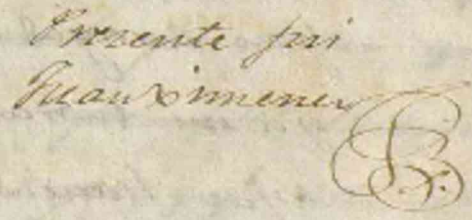 Presente fui
Juan Ximenez